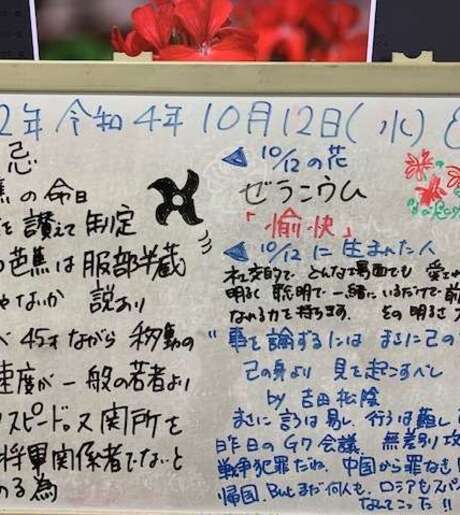 2年 令和4年 10月12日(水)
忌
の命日
を 讃えて 制定
芭蕉は 服部半蔵
ゃないか 説あり
45才ながら 移動の
速度が 一般の若者より
スピード。又 関所を
将軍関係者でないと
める為
◀ 10/12の花
ゼラニウム
「愉快」
◀ 10/12 に 生まれた人
社交的で どんな場面でも 愛さ
明るく 聡明で 一緒にいるだけで 前
なれる力を持ちます。 その明るさ
"事を論ずるには まさに己の
己の身より 見を起こすべし
by 吉田松陰
まさに 言うは易し、行うは難し
昨日のG7会議、無差別攻
戦争犯罪だね、中国から罪なき
帰国、But まだ何人も、ロシアもスパ
なんてこった!!